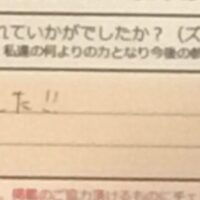 れていかがでしたか？（ズ
私達の何よりの力となり今後の
した!!
掲載のご協力頂けるものにチェ